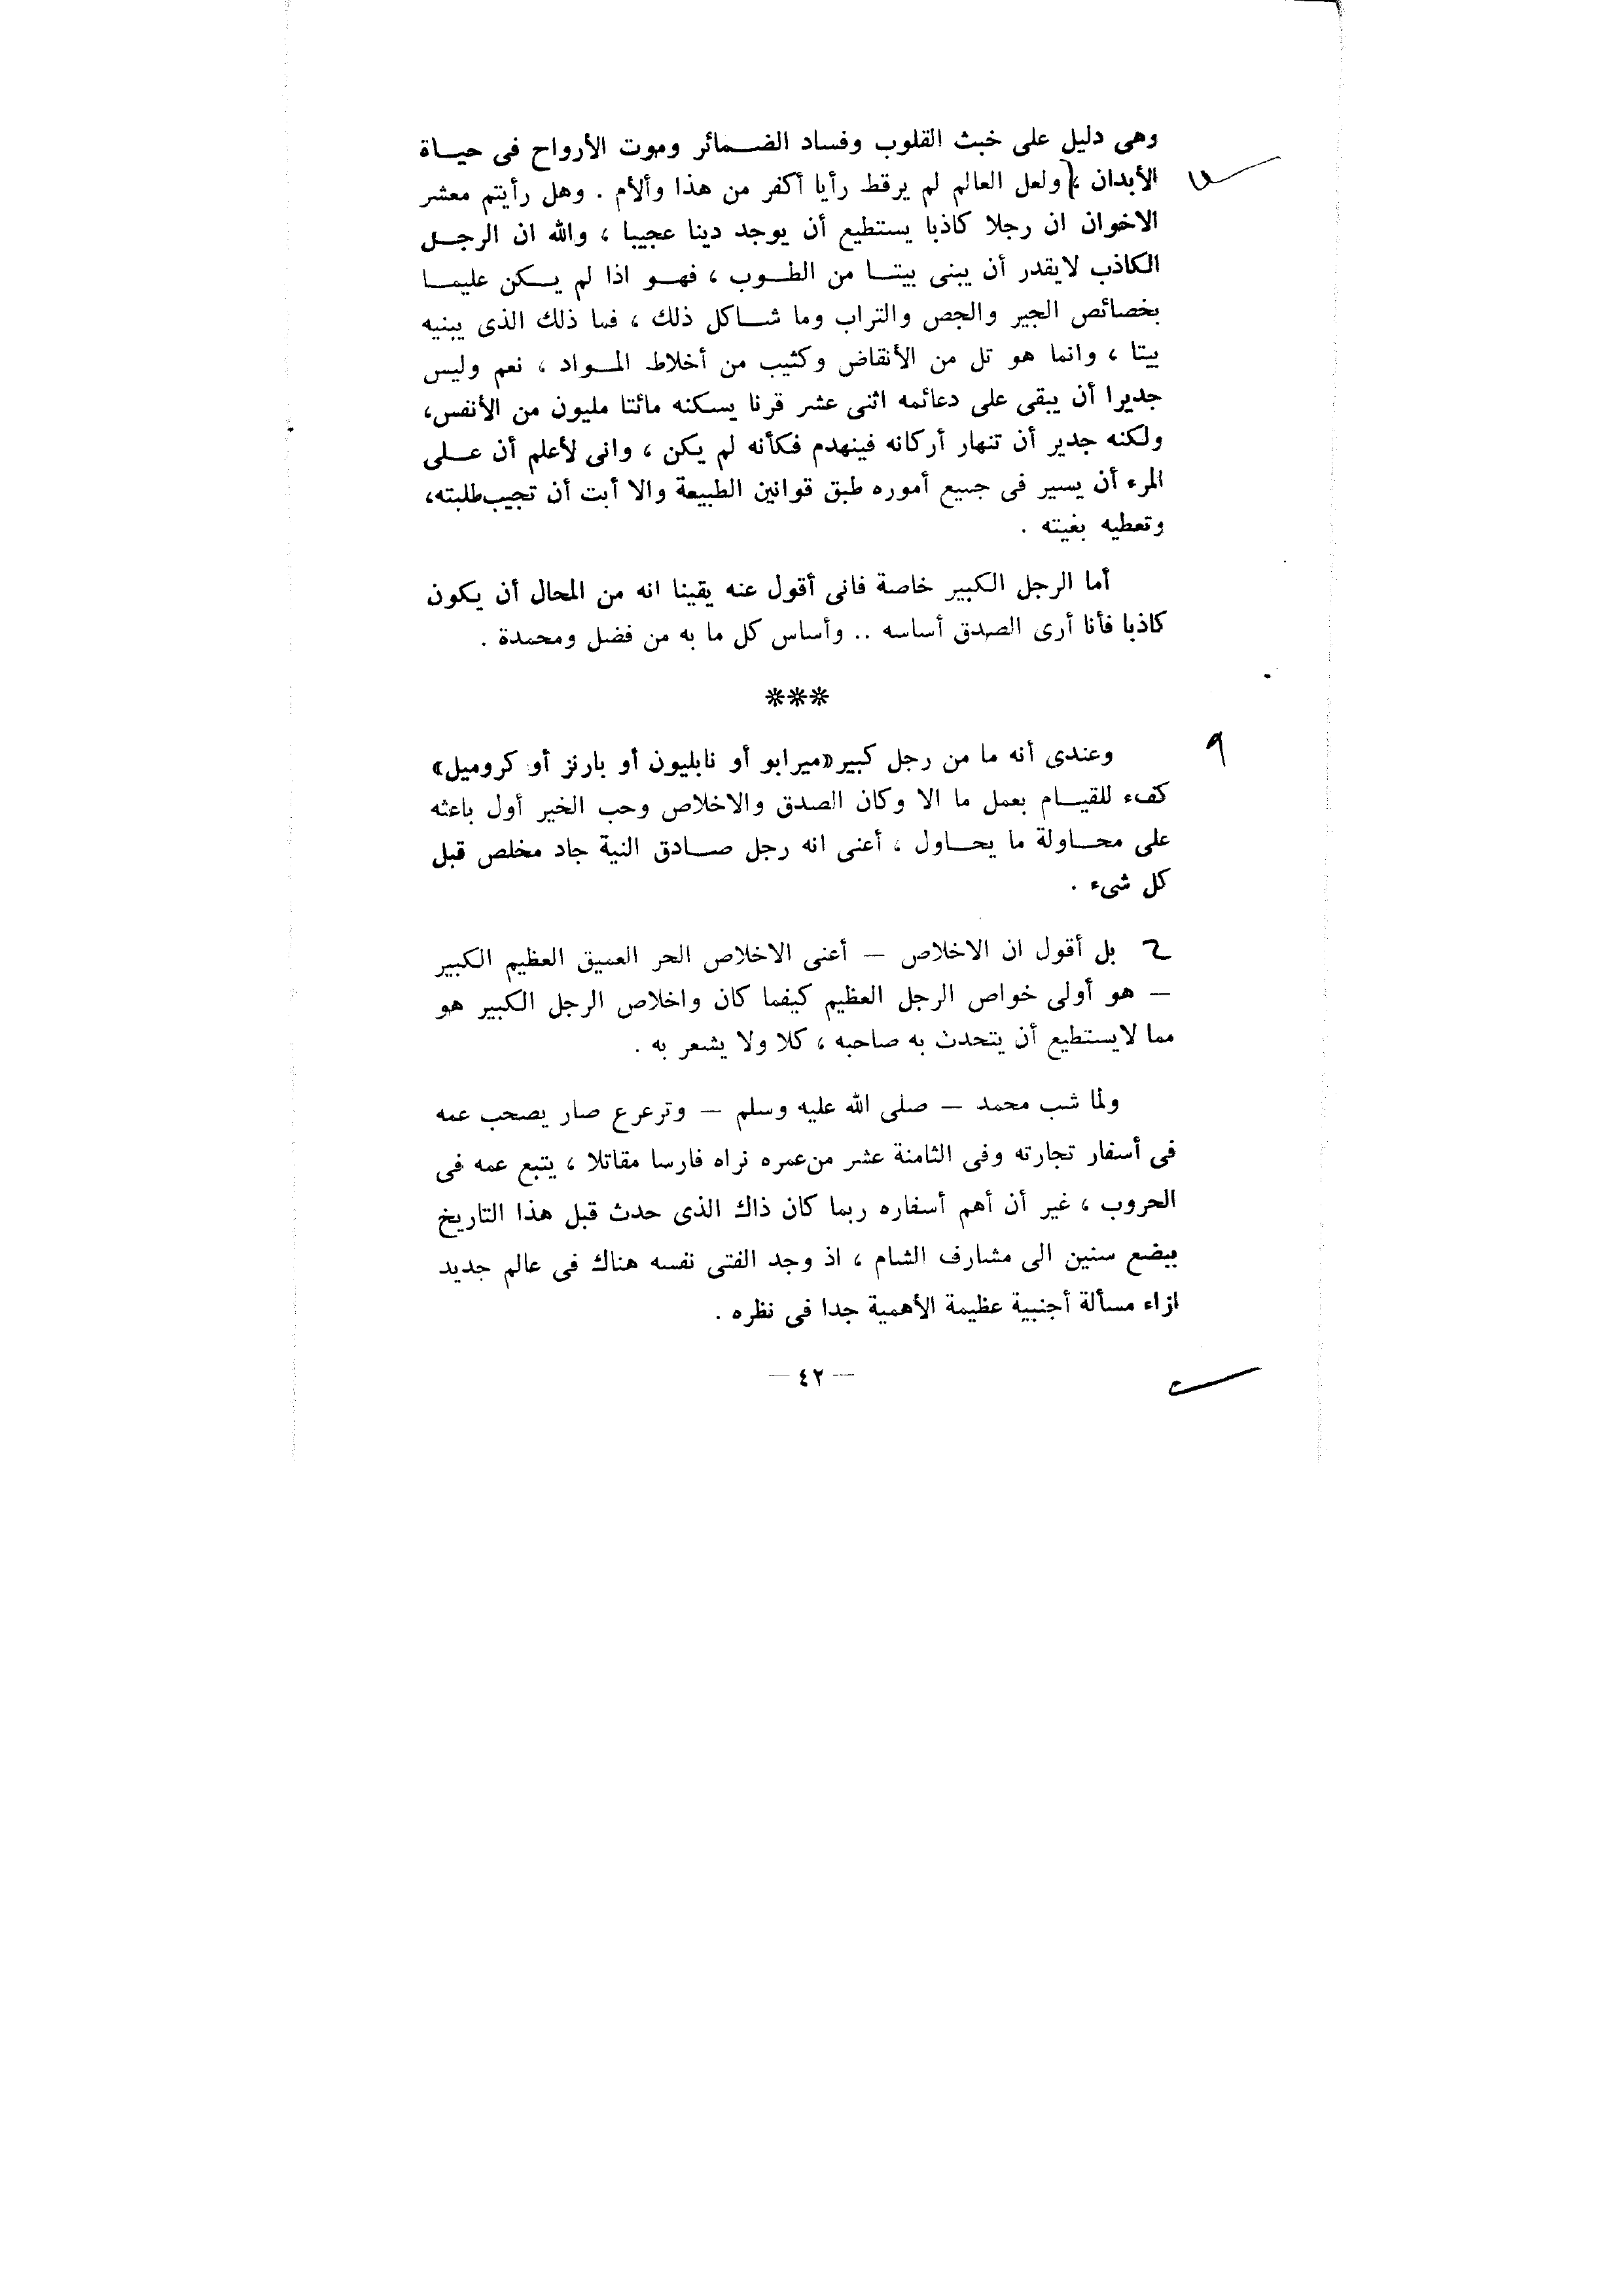 وهى دليل على خبث القلوب وفساد الضمائر وموت الأرواح فى حياة
الأبدان ، ولعل العالم لم ير قط رأيا أكفر من هذا وألأم . وهل رأيتم معشر
الاخوان ان رجلا كاذبا يستطيع أن يوجد دينا عجيبا ، والله ان الرجل
الكاذب لايقدر أن يبنى بيتا من الطوب ، فهو اذا لم يكن عليما
بخصائص الجير والجص والتراب وما شاكل ذلك ، فما ذلك الذى يبنيه
بيتا ، وانما هو تل من الأنقاض وكثيب من أخلاط المواد ، نعم وليس
جديرا أن يبقى على دعائمه اثنى عشر قرنا يسكنه مائتا مليون من الأنفس،
ولكنه جدير أن تنهار أركانه فينهدم فكأنه لم يكن ، وانى لأعلم أن على
المرء أن يسير فى جميع أموره طبق قوانين الطبيعة والا أبت أن تجيب طلبته،
وتعطيه بغيته .
أما الرجل الكبير خاصة فانى أقول عنه يقينا انه من المحال أن يكون
كاذبا فأنا أرى الصدق أساسه .. وأساس كل ما به من فضل ومحمدة .
***
وعندى أنه ما من رجل كبير «ميرابو أو نابليون أو بارنز أو كروميل»
كفء للقيام بعمل ما الا وكان الصدق والاخلاص وحب الخير أول باعثه
على محاولة ما يحاول ، أعنى انه رجل صادق النية جاد مخلص قبل
كل شىء .
بل أقول ان الاخلاص — أعنى الاخلاص الحر العميق العظيم الكبير
— هو أولى خواص الرجل العظيم كيفما كان واخلاص الرجل الكبير هو
مما لايستطيع أن يتحدث به صاحبه ، كلا ولا يشعر به .
ولما شب محمد — صلى الله عليه وسلم — وترعرع صار يصحب عمه
فى أسفار تجارته وفى الثامنة عشر من عمره نراه فارسا مقاتلا ، يتبع عمه فى
الحروب ، غير أن أهم أسفاره ربما كان ذاك الذى حدث قبل هذا التاريخ
ببضع سنين الى مشارف الشام ، اذ وجد الفتى نفسه هناك فى عالم جديد
ازاء مسألة أجنبية عظيمة الأهمية جدا فى نظره .
— ٤٢ —